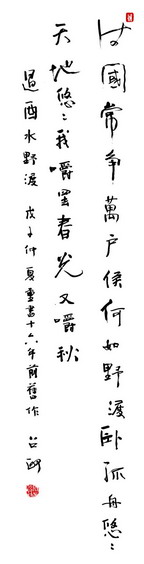 國常爭萬戶侯何如野渡臥孤舟悠〻
天地悠〻我嚼罢春光又嚼秋
過酉水野渡 戊子仲夏重書十六年前舊作